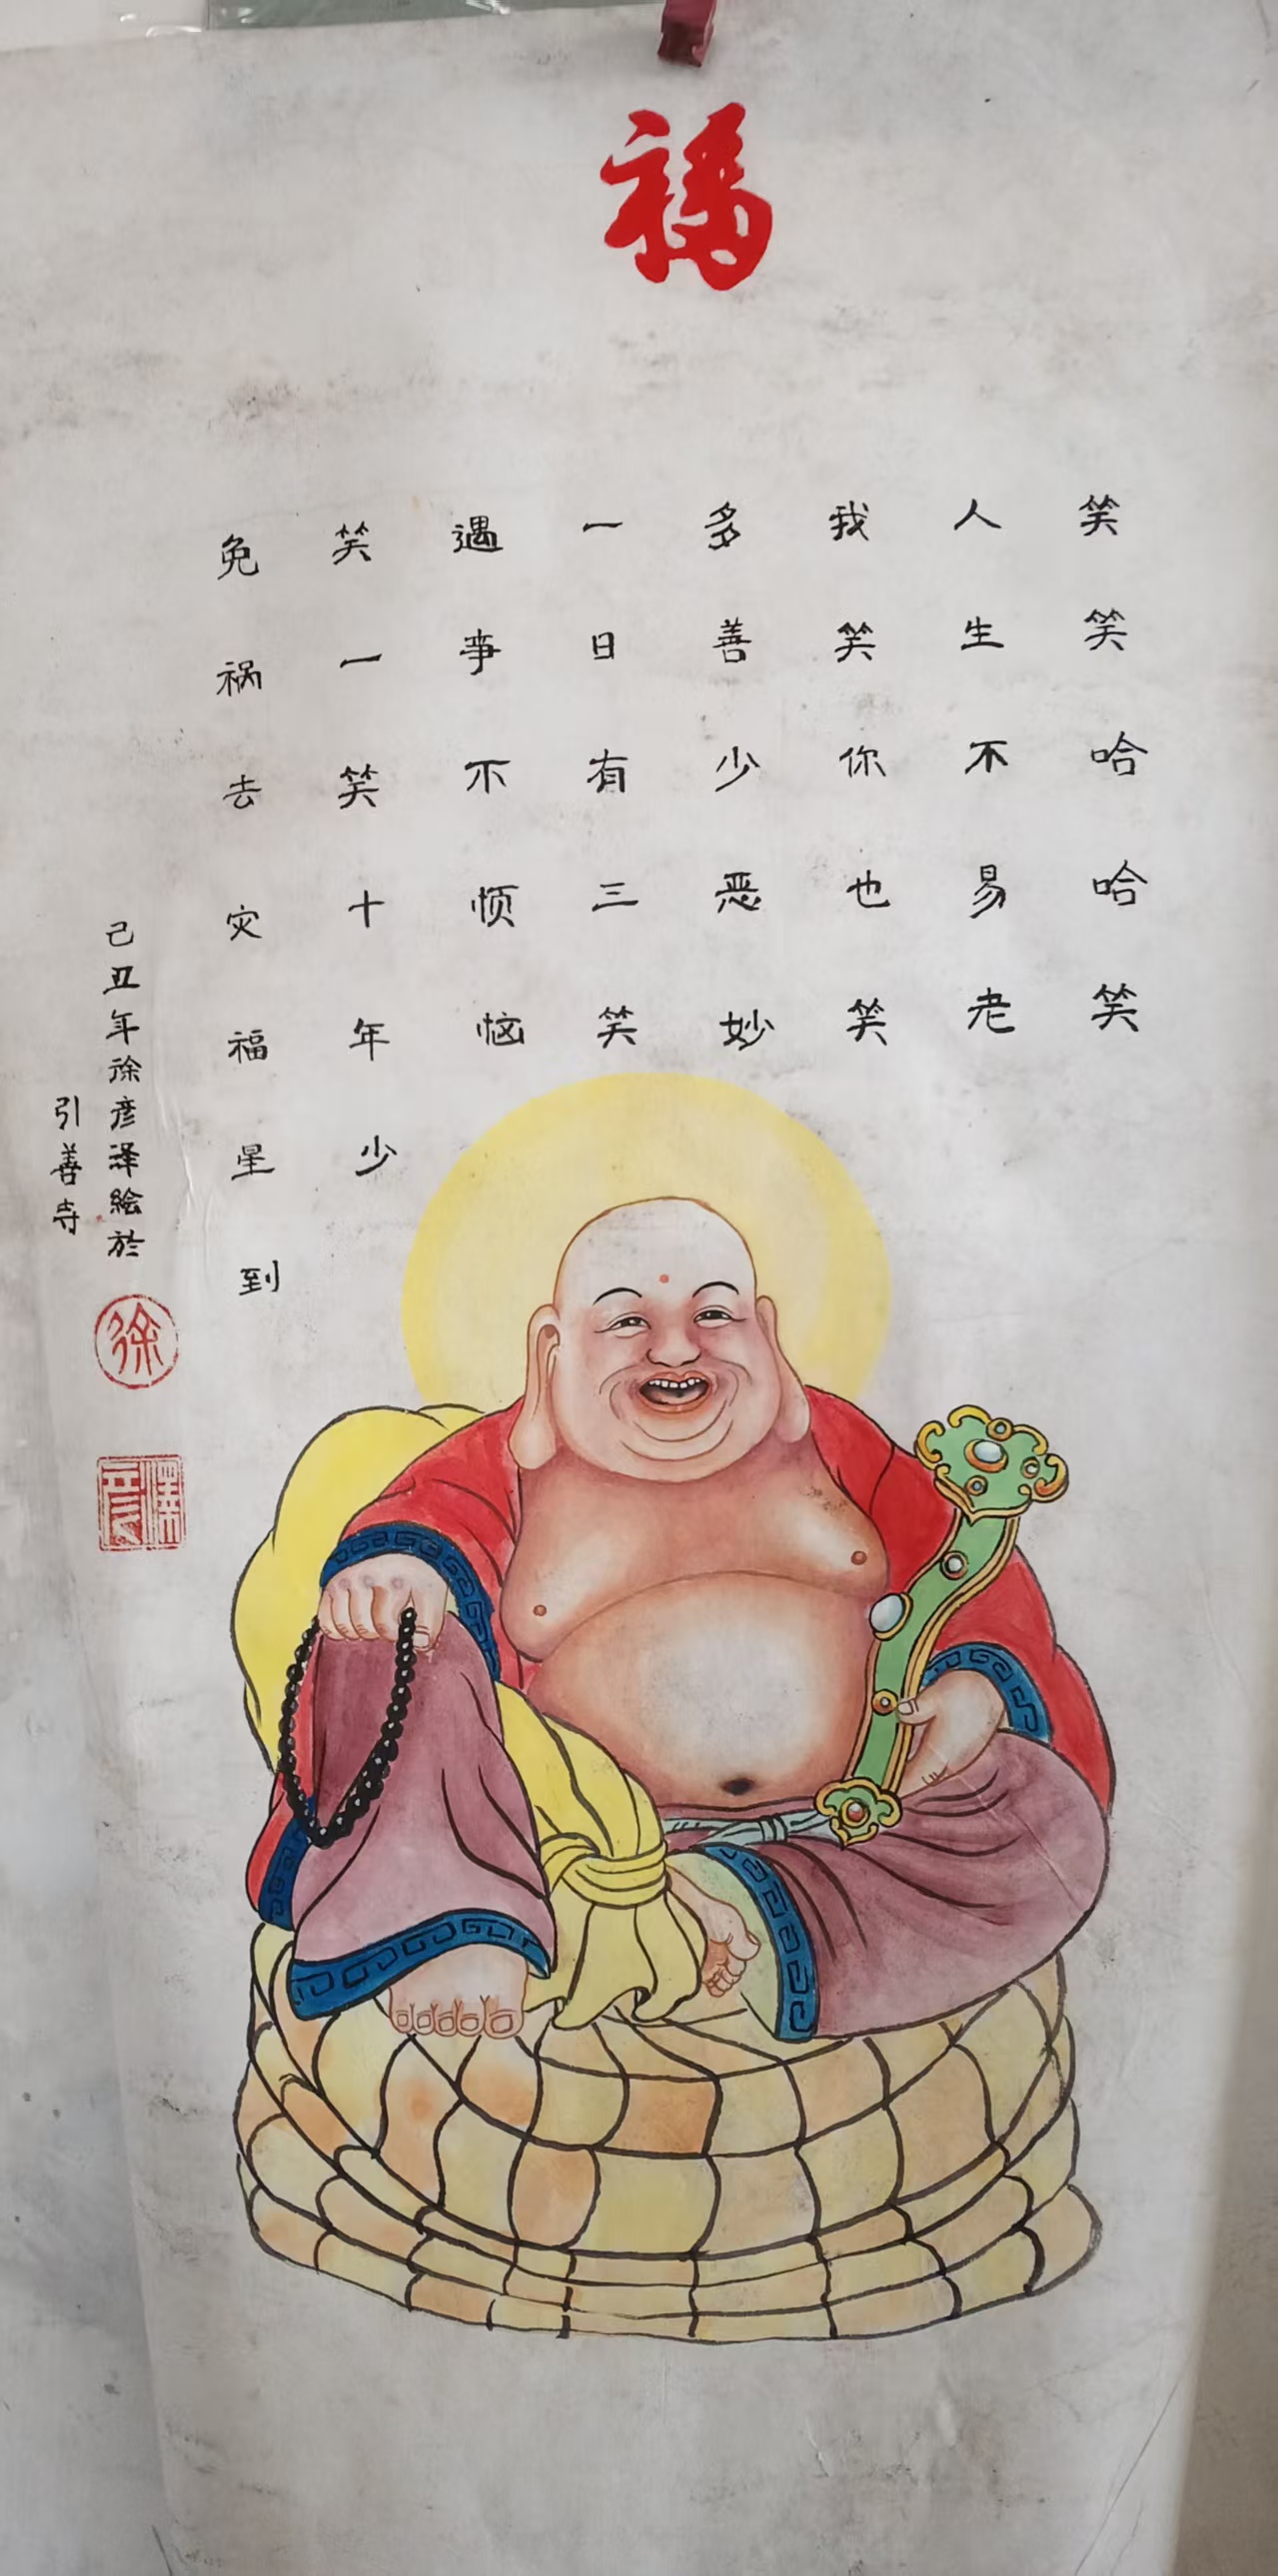 福
笑笑哈哈笑
人生不易老
我笑你也笑
多善少恶妙
一日有三笑
遇事不烦恼
笑一笑十年少
免祸去灾福星到
己丑年徐彦泽绘於
引善寺
徐
彦泽